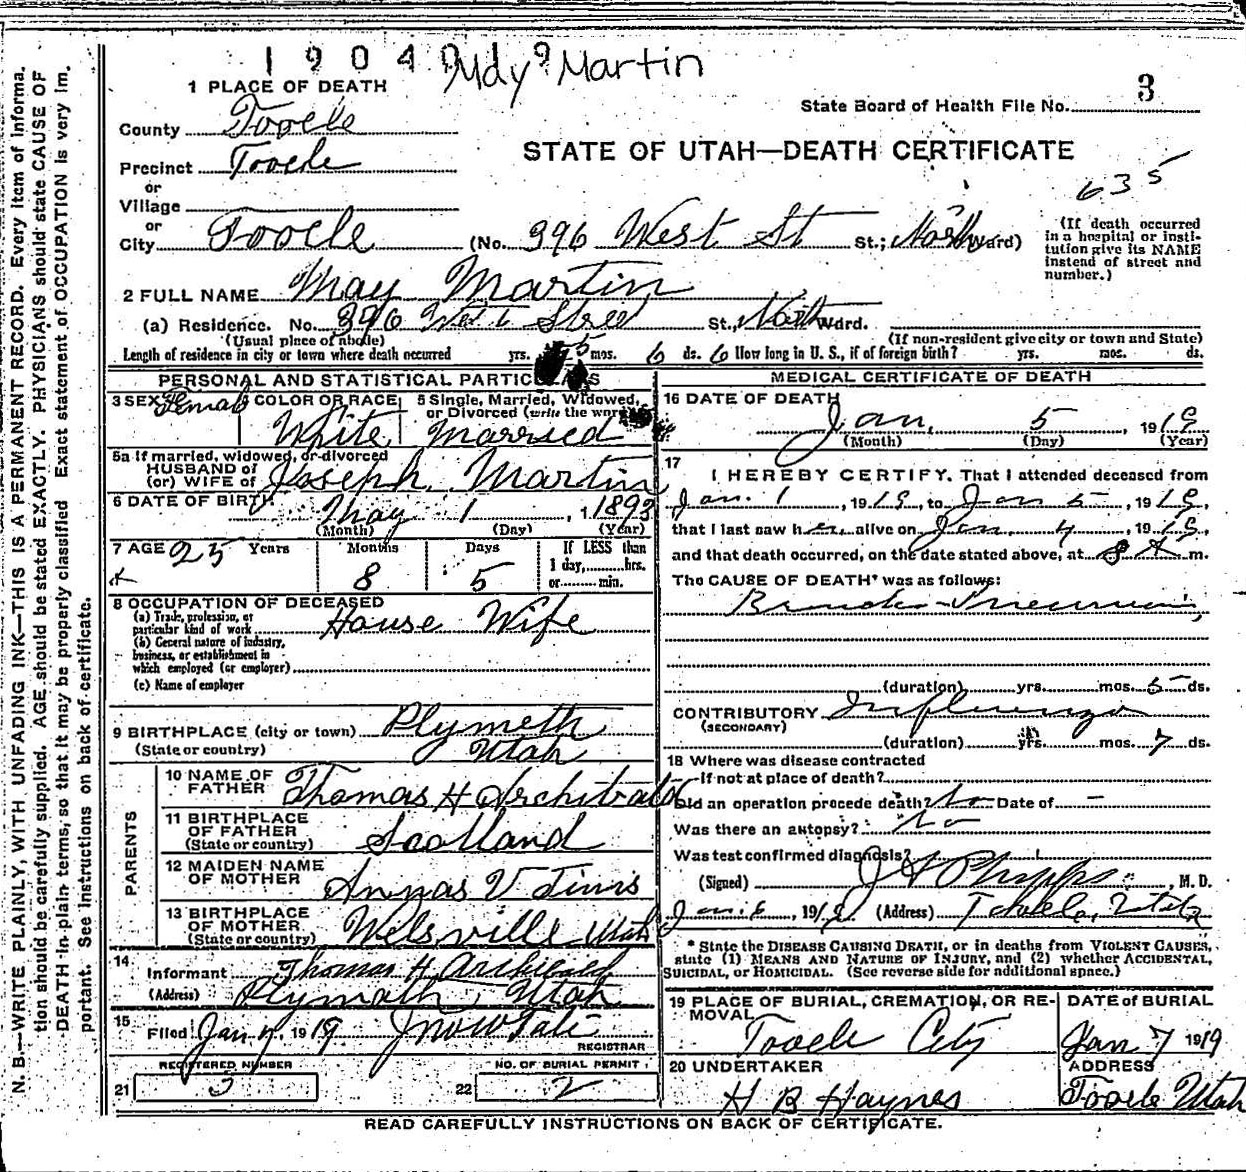 1904 May Martin
1 PLACE OF DEATH
State Board of Health File No. 3
County Tooele
STATE OF UTAH—DEATH CERTIFICATE
Precinct Tooele
635
or
Village
or
City Tooele (No. 396 West St St.; North Ward)
(If death occurred
in a hospital or insti-
tution give its NAME
instead of street and
number.)
2 FULL NAME May Martin
(a) Residence. No. 396 West Street St., North Ward.
(Usual place of abode) (If non-resident give city or town and State)
Length of residence in city or town where death occurred yrs. 5 mos. 6 ds. 6 How long in U. S., if of foreign birth? yrs. mos. ds.
PERSONAL AND STATISTICAL PARTICULARS
3 SEX Female
4 COLOR OR RACE White
5 Single, Married, Widowed,
or Divorced (write the word)
Married
5a If married, widowed, or divorced
HUSBAND of
(or) WIFE of Joseph Martin
6 DATE OF BIRTH May 1, 1893
(Month) (Day) (Year)
7 AGE 25 Years 8 Months 5 Days
If LESS than
1 day, hrs.
or min.
8 OCCUPATION OF DECEASED
(a) Trade, profession, or
particular kind of work House Wife
(b) General nature of industry,
business, or establishment in
which employed (or employer)
(c) Name of employer
9 BIRTHPLACE (city or town) Plymeth
(State or country) Utah
PARENTS
10 NAME OF
FATHER Thomas H Archibald
11 BIRTHPLACE
OF FATHER
(State or country) Scotland
12 MAIDEN NAME
OF MOTHER
13 BIRTHPLACE
OF MOTHER
(State or country) Welsville Utah
14
Informant Thomas H Archibald
(Address) Plymoth, Utah
15
Filed Jan 7, 1919
REGISTRAR
REGISTERED NUMBER
21 3
NO. OF BURIAL PERMIT
22 2
MEDICAL CERTIFICATE OF DEATH
16 DATE OF DEATH
Jan. 5, 1919
(Month) (Day) (Year)
17
I HEREBY CERTIFY, That I attended deceased from
Jan. 1, 1919, to Jan 5, 1919,
that I last saw her alive on Jan. 4, 1919,
and that death occurred, on the date stated above, at 8 A m.
The CAUSE OF DEATH* was as follows:
Broncho-Pneumonia,
(duration) yrs. mos. 5 ds.
CONTRIBUTORY Influenza
(SECONDARY)
(duration) yrs. mos. 7 ds.
18 Where was disease contracted
If not at place of death?
Did an operation precede death? No Date of –
Was there an autopsy? No
Was test confirmed diagnosis?
(Signed) J H Phipps, M. D.
Jan. 6, 1919 (Address) Tooele, Utah
* State the DISEASE CAUSING DEATH, or in deaths from VIOLENT CAUSES,
state (1) MEANS AND NATURE OF INJURY, and (2) whether ACCIDENTAL,
SUICIDAL, or HOMICIDAL. (See reverse side for additional space.)
19 PLACE OF BURIAL, CREMATION, OR RE-
MOVAL
Tooele City
DATE of BURIAL
Jan 7 1919
20 UNDERTAKER
H B Haynes
ADDRESS
Tooele Utah
READ CAREFULLY INSTRUCTIONS ON BACK OF CERTIFICATE.
N. B.—WRITE PLAINLY, WITH UNFADING INK—THIS IS A PERMANENT RECORD. Every item of informa-
tion should be carefully supplied. AGE should be stated EXACTLY. PHYSICIANS should state CAUSE OF
DEATH in plain terms, so that it may be properly classified. Exact statement of OCCUPATION is very im-
portant. See instructions on back of certificate.